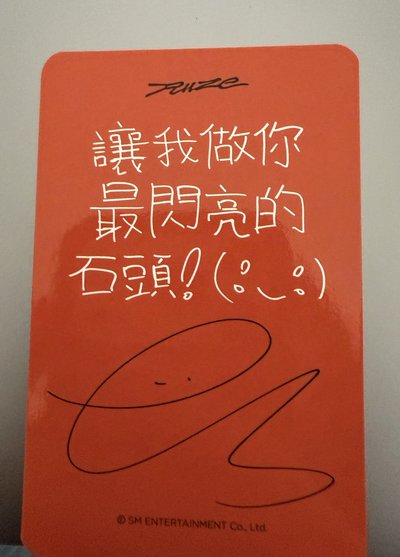 RIIZE
讓我做你
最閃亮的
石頭!(⁠ ⁠ඉ⁠ ⁠‿⁠ ⁠ඉ⁠ ⁠)
© SM ENTERTAINMENT Co., Ltd.